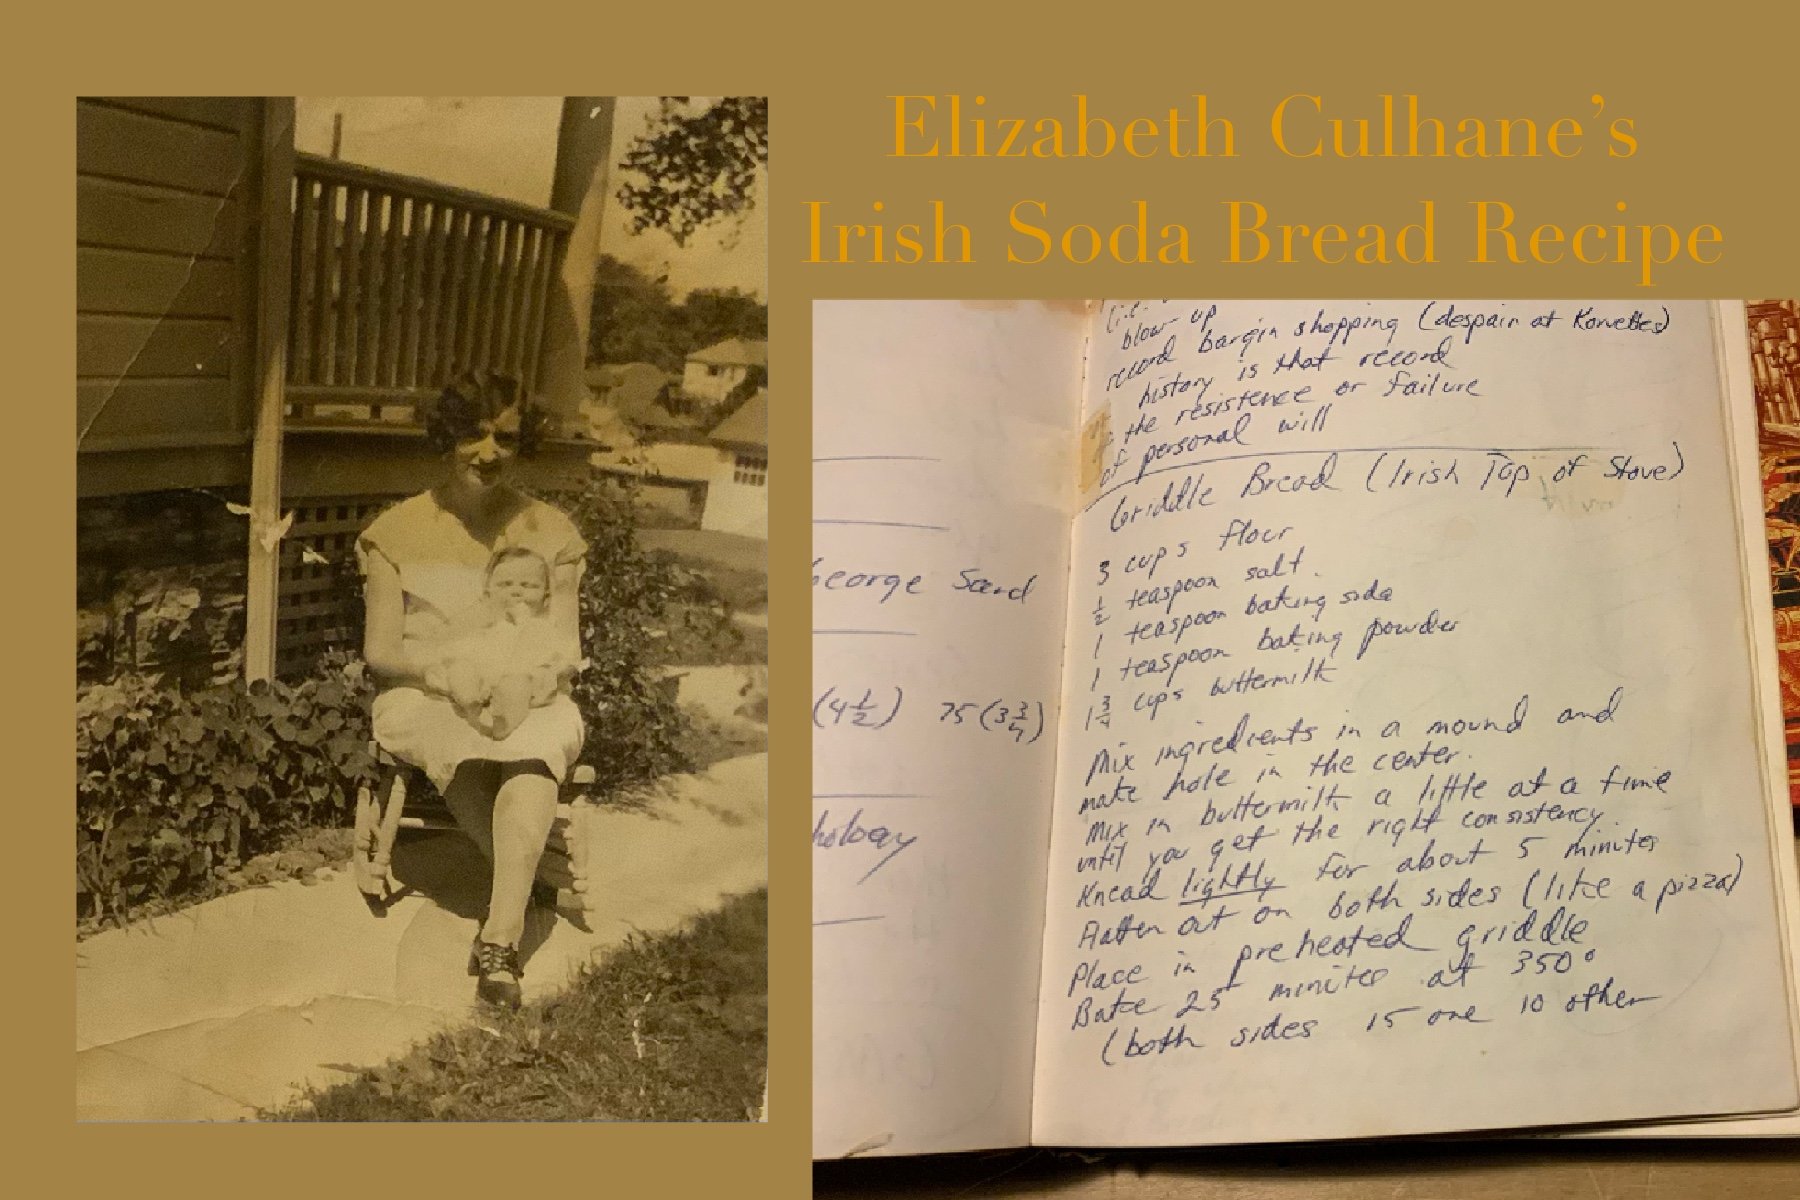 Elizabeth Culhane’s
Irish Soda Bread Recipe
(i.e.
blow-up
record bargin shopping (despair at Korvettes)
history is that record
the resistence or failure
of personal will
Griddle Bread (Irish Top of Stove)
3 cups flour
1/2 teaspoon salt.
1 teaspoon baking soda
1 teaspoon baking powder
1 3/4 cups buttermilk
Mix ingredients in a mound and
make hole in the center.
Mix in buttermilk a little at a time
until you get the right consistency.
Knead lightly for about 5 minutes
Flatten out on both sides (like a pizza)
Place in preheated griddle
Bake 25 minites at 350°
(both sides 15 one 10 other
George Sand
(4 1/2) 75 (3 3/4)
hology